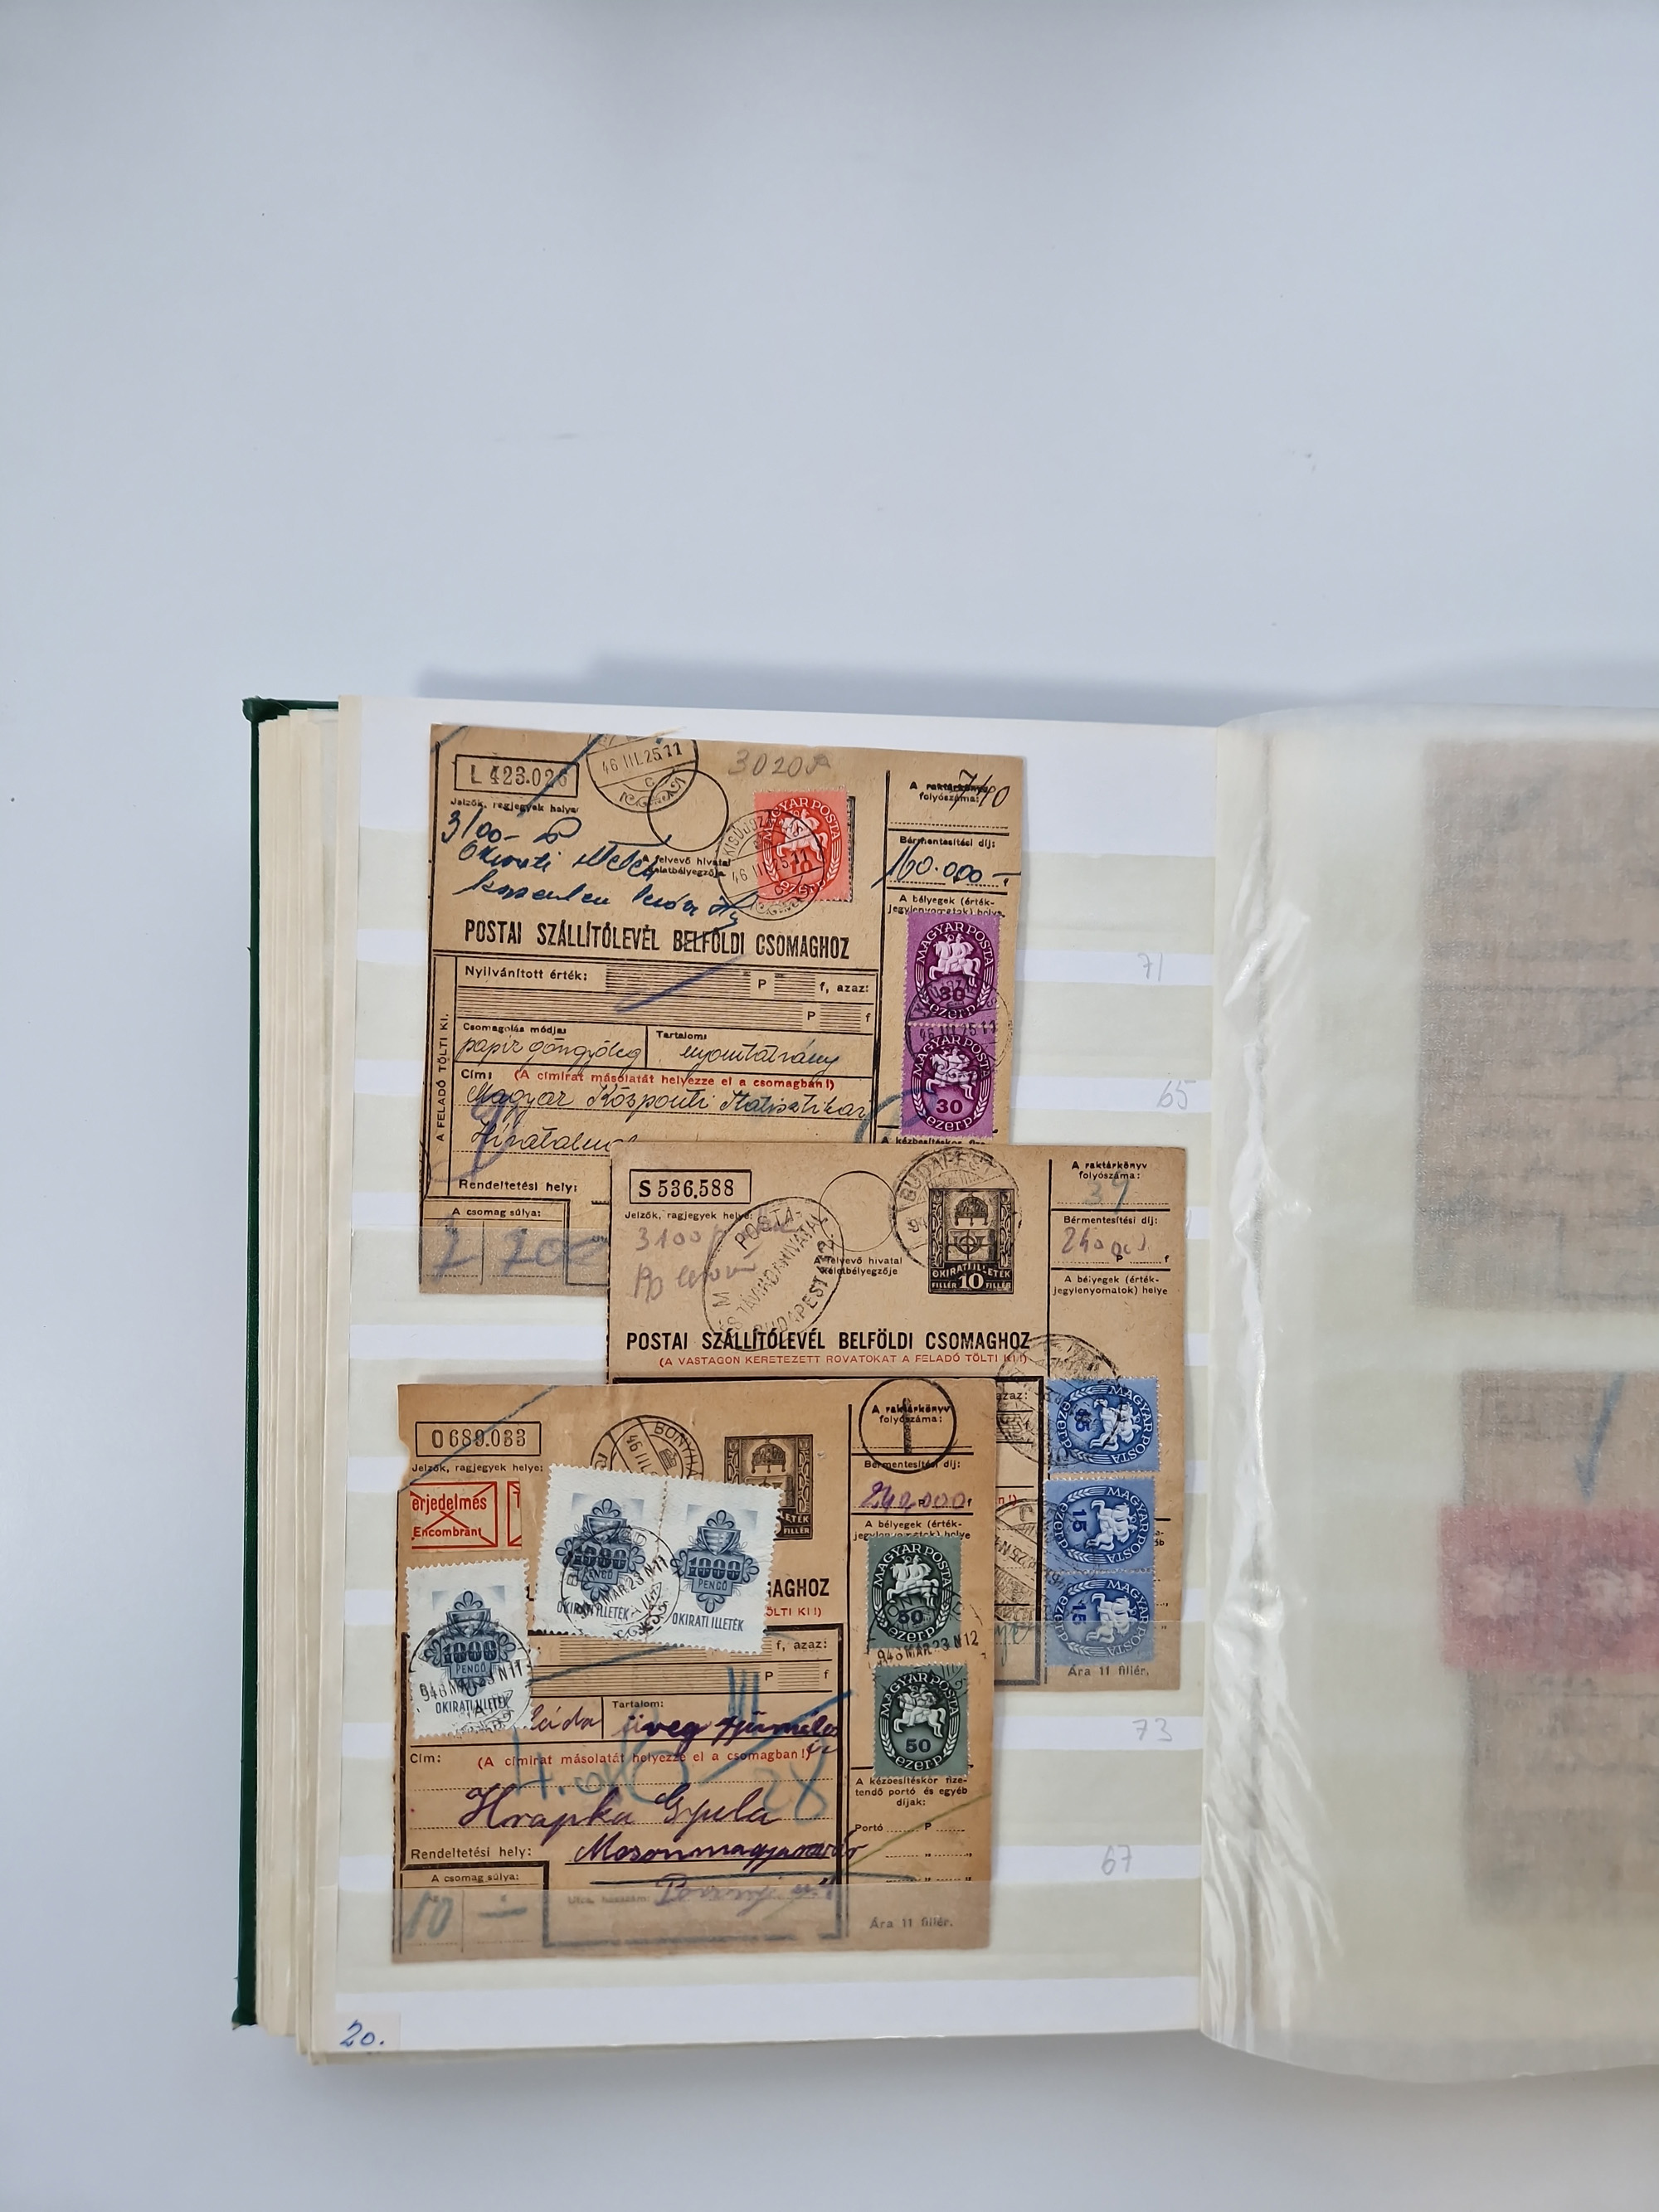 L 423.026
46 III.25 11
C
3020A
Jelzők, ragjegyek helye:
3100- P
A felvevő hivatal
keletbélyegzője
MAGYAR POSTA
10
ezerp
KISÚJSZ
46 III 25 11
A raktárkönyv
folyószáma:
740
Bérmentesítési díj:
160.000-
A bélyegek (érték-
jegylenyomatok) helye
POSTAI SZÁLLÍTÓLEVÉL BELFÖLDI CSOMAGHOZ
MAGYAR POSTA
30
ezerp
46 III 25 11
MAGYAR POSTA
30
ezerp
A FELADÓ TÖLTI KI.
Nyilvánított érték:
P
f, azaz:
P
f
Csomagolás módja:
papír göngyöleg
Tartalom:
nyomtatvány
Cím: (A címirat másolatát helyezze el a csomagban!)
Magyar Központi Statisztikai
Hivatalnak
A kézbesítéskor fize-
Rendeltetési hely:
A csomag súlya:
71
65
S 536,588
Jelzők, ragjegyek helye:
3100 P
POSTA-
ÉS TÁVIRDAHIVATAL
BUDAPEST
A felvevő hivatal
keletbélyegzője
BUDAPEST
OKIRATI ILLETÉK
FILLÉR 10 FILLÉR
A raktárkönyv
folyószáma:
39
Bérmentesítési díj:
240000
P f
A bélyegek (érték-
jegylenyomatok) helye
POSTAI SZÁLLÍTÓLEVÉL BELFÖLDI CSOMAGHOZ
(A VASTAGON KERETEZETT ROVATOKAT A FELADÓ TÖLTI KI!)
azaz:
MAGYAR POSTA
15
ezerp
MAGYAR POSTA
15
ezerp
MAGYAR POSTA
15
ezerp
Ára 11 fillér.
O 689.033
Jelzők, ragjegyek helye:
erjedelmes
Encombrant
46 III
BONYHÁ
FILLÉR
A raktárkönyv
folyószáma:
T
Bérmentesítési díj:
240.000
A bélyegek (érték-
jegylenyomatok) helye
1000
PENGŐ
OKIRATI ILLETÉK
1000
PENGŐ
OKIRATI ILLETÉK
946 MAR 23 N 11
1000
PENGŐ
OKIRATI ILLETÉK
946 MAR 23 N 11
MAGHOZ
ÖLTI KI!)
MAGYAR POSTA
50
ezerp
946 MAR 23 N 12
MAGYAR POSTA
50
ezerp
f, azaz:
P
f
láda
Tartalom:
üveg gyümölcs
Cím: (A címirat másolatát helyezze el a csomagban!)
Hrapka Gyula
Rendeltetési hely:
Mosonmagyaróvár
A csomag súlya:
10
Utca, házszám:
A kézbesítéskor fize-
tendő portó és egyéb
díjak:
Portó P
Ára 11 fillér.
73
67
20.